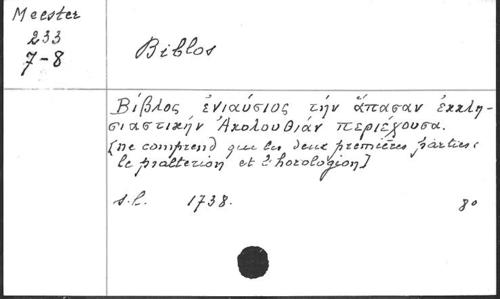 Meester
233
7-8
Biblos
Βίβλος ἐνιαύσιος τήν ἅπασαν ἐκκλη-
σιαστικήν Ἀκολουθιάν περιέχουσα.
[ne comprend que les deux premières parties:
le psalterion et l'horologion]
s.l. 1738. 8°